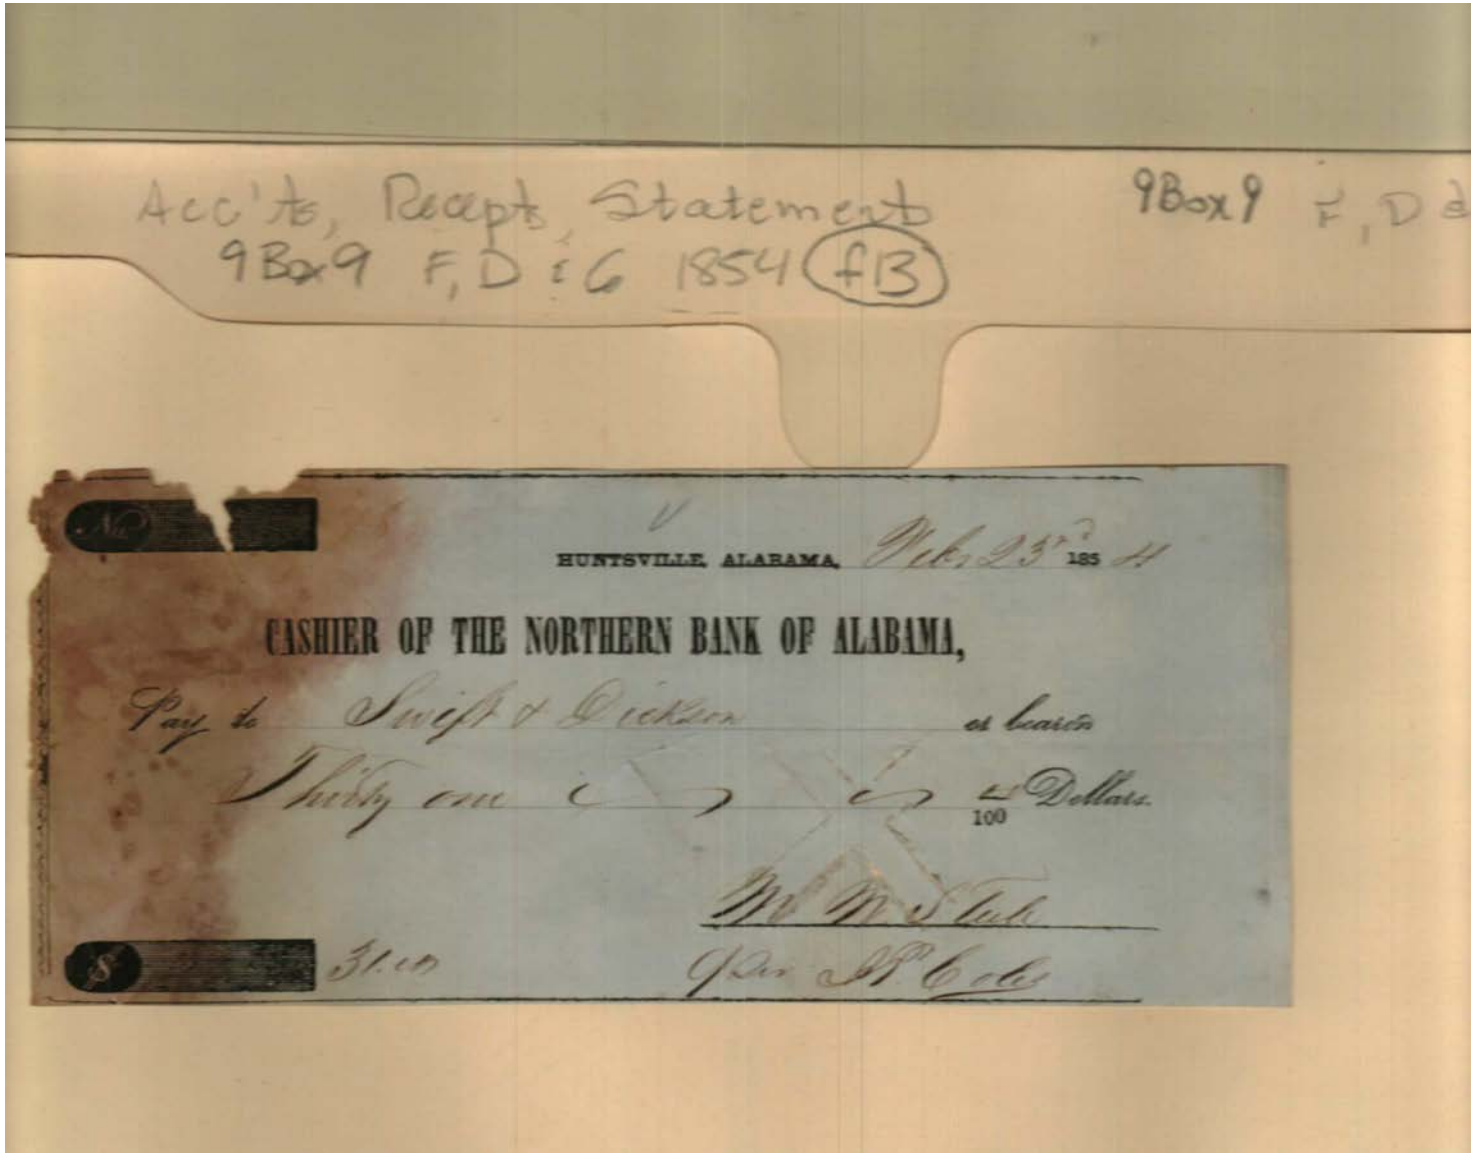 Acc'ts, Recepts, Statements
9Box9 F, D & G 1854 f13
9Box9 F, D &
No
HUNTSVILLE, ALABAMA, Feb. 23rd 1854
CASHIER OF THE NORTHERN BANK OF ALABAMA,
Pay to Swift & Dickson or bearer
Thirty one /100 Dollars.
$ 31.00